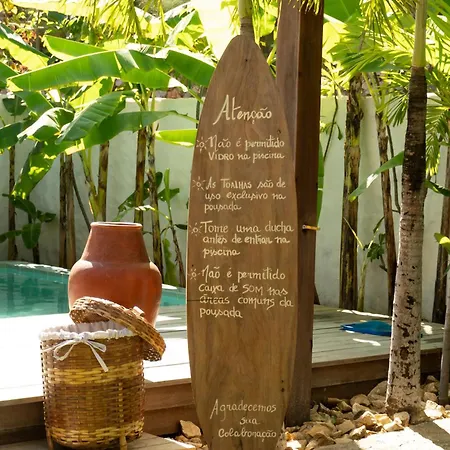 Atenção
Não é permitido
Vidro na piscina
As Toalhas são de
uso exclusivo na
pousada
Tome uma ducha
antes de entrar na
piscina
Não é permitido
caixa de som nas
áreas comuns da
pousada
Agradecemos
sua
Colaboração